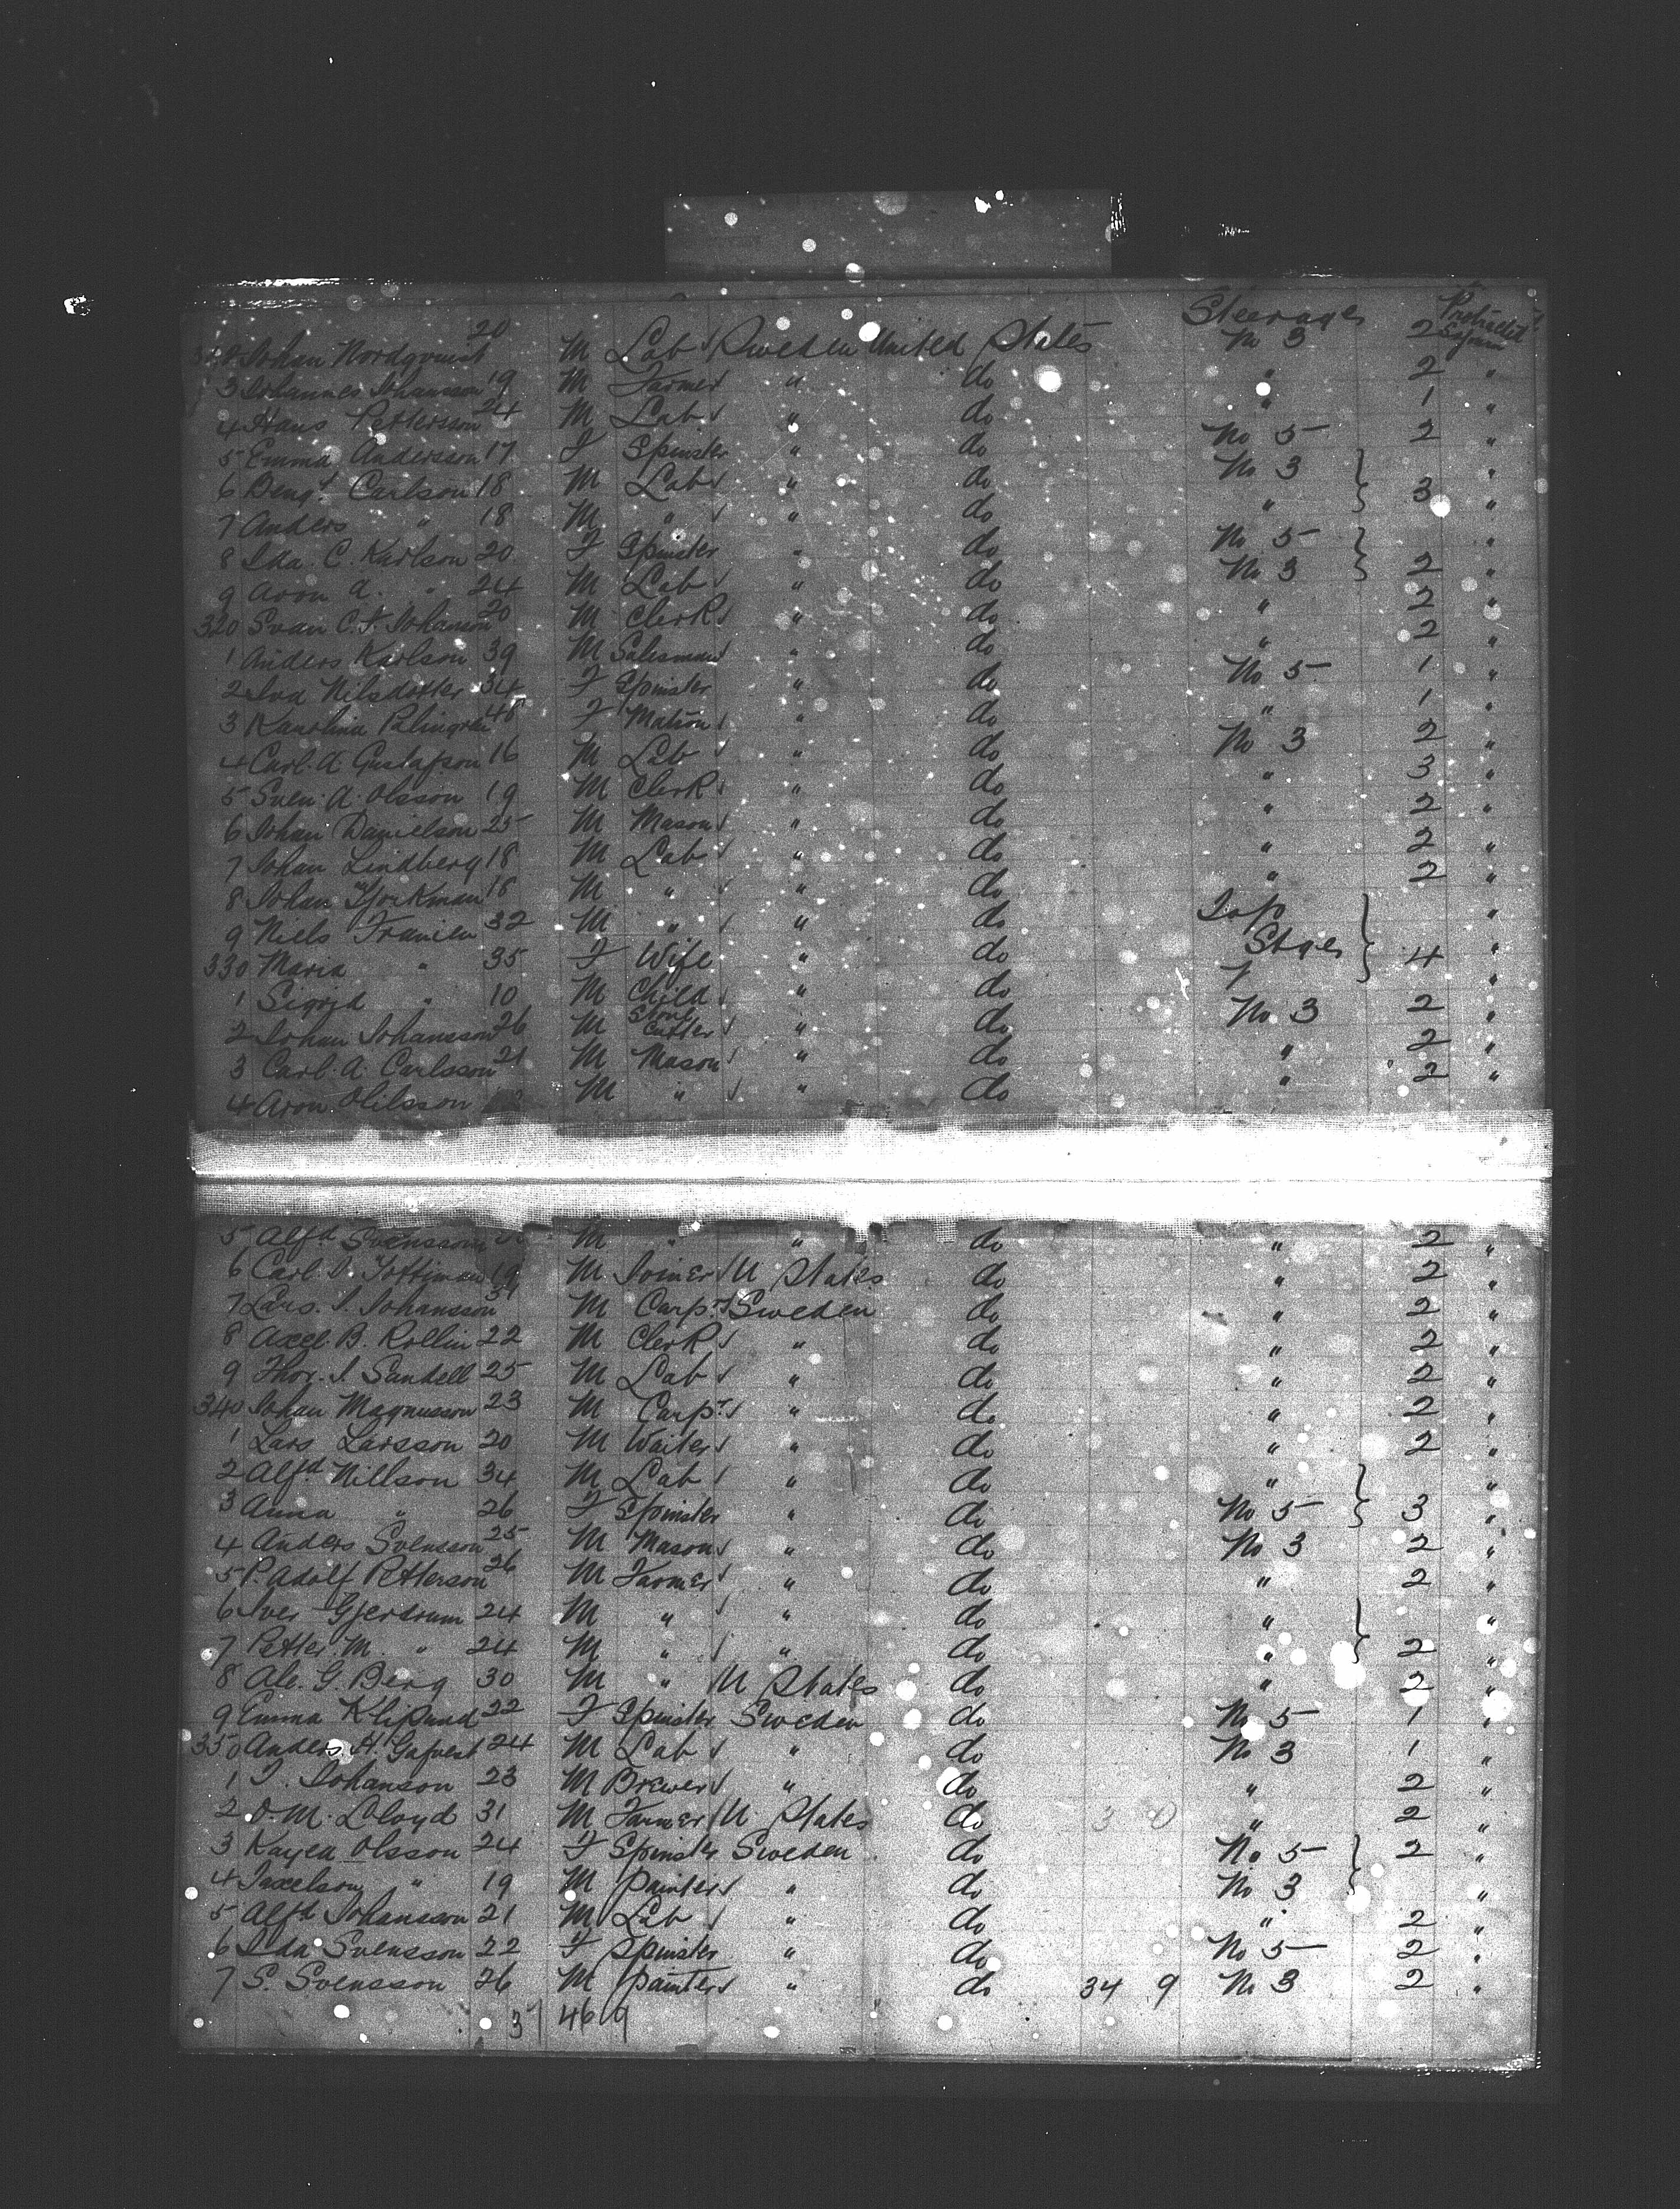 Steerage Protracted Sojourn
312 Johan Nordqvist 20 M Lab Sweden United States No 3 2
3 Johannes Johansson 19 M Farmer " do " 2 "
4 Hans Petterson 24 M Lab " do " 1 "
5 Emma Anderson 17 F Spinster " do No 5 2 "
6 Bengt Carlson 18 M Lab " do No 3 "
7 Anders " 18 M " " do " 3 "
8 Ida C. Karlson 20 F Spinster " do No 5 "
9 Aron A. " 24 M Lab " do No 3 2 "
320 Svan C. F. Johanson 20 M Clerk " do " 2 "
1 Anders Karlson 39 M Salesman " do " 2 "
2 Iva Nilsdotter 34 F Spinster " do No 5 1 "
3 Karolina 48 F Matron " do " 1 "
4 Carl A. Gustafson 16 M Lab " do No 3 2 "
5 Sven A. Olsson 19 M Clerk " do " 3 "
6 Johan Danielson 25 M Mason " do " 2 "
7 Johan Lindberg 18 M Lab " do " 2 "
8 Johan 18 M " " do " 2 "
9 Niels Franien 32 M " " do "
330 Maria " 35 F Wife " do Stge 4 "
1 Sigrid " 10 M Child " do "
2 Johan Johansson 26 M Stone Cutter " do No 3 2 "
3 Carl A. Carlsson 21 M Mason " do " 2 "
4 Aron M " " do " 2 "
5 Alfd Svensson M " " do " 2 "
6 Carl M Joiner U States do " 2 "
7 Lars J. Johansson M Carpr Sweden do " 2 "
8 Axel B. Rollin 22 M Clerk " do " 2 "
9 Thor. J. Sandell 25 M Lab " do " 2 "
340 Johan Magnusson 23 M Carpr " do " 2 "
1 Lars Larsson 20 M Waiter " do " 2 "
2 Alfd Nillson 34 M Lab " do " "
3 Anna " 26 F Spinster " do No 5 3 "
4 Anders Svensson 25 M Mason " do No 3 2 "
5 P. Adolf Petterson 26 M Farmer " do " 2 "
6 Iver Gjerdrum 24 M " " do " "
7 Petter M. " 24 M " " do " 2 "
8 Ale. G. Berg 30 M " U States do " 2 "
9 Emma Klipund 22 F Spinster Sweden do No 5 1 "
350 Anders H. Gafvert 24 M Lab " do No 3 1 "
1 J. Johanson 23 M Brewer " do " 2 "
2 D. M. Lloyd 31 M Farmer U. States do 3 0 " 2 "
3 Kayea Olsson 24 F Spinster Sweden do No 5 2 "
4 " 19 M Painter " do No 3 "
5 Alfd Johansson 21 M Lab " do " 2 "
6 Ida Svensson 22 F Spinster " do No 5 2 "
7 S. Svensson 26 M painter " do 34 9 No 3 2 "
37 46 9